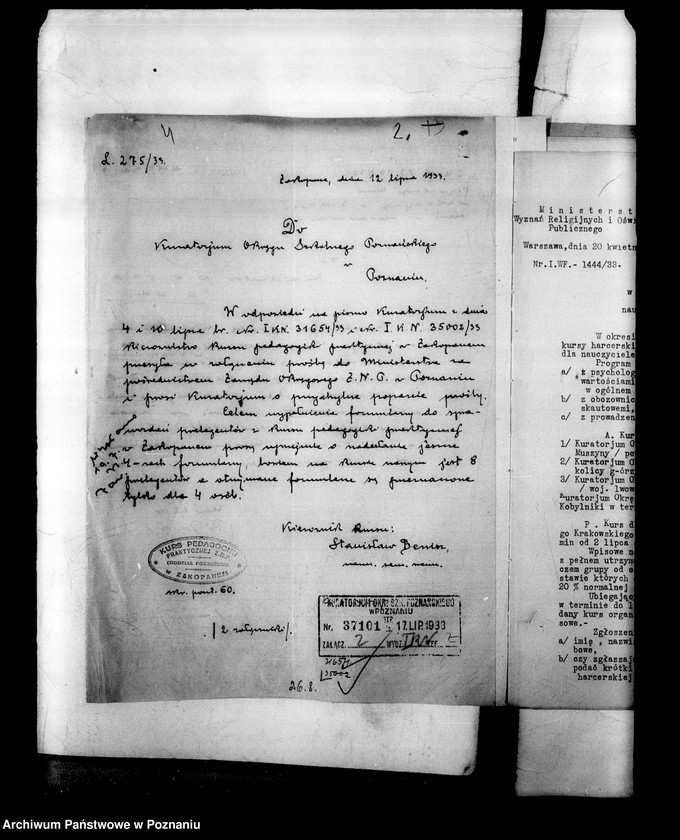 L. 275/33.
2.
Zakopane, dnia 12 lipca 1933.
Do
Kuratorjum Okręgu Szkolnego Poznańskiego
w
Poznaniu.
W odpowiedzi na pismo Kuratorjum z dnia
4 i 10 lipca br. Nr. I K N. 31654/33 i Nr. I K. N. 35002/33
Kierownictwo Kursu pedagogiki praktycznej w Zakopanem
przesyła w załączeniu prośbę do Ministerstwa za
pośrednictwem Zarządu Okręgowego Z. N. P. w Poznaniu
i prosi Kuratorjum o przychylne poparcie prośby.
Celem wypełnienia formularzy do spra-
wozdań prelegentów z kursu pedagogiki praktycznej
w Zakopanem proszę uprzejmie o nadesłanie jeszcze
4-rech formularzy, bowiem na kursie naszym jest 8
prelegentów a otrzymane formularze są przeznaczone
tylko dla 4 osób.
Kierownik Kursu:
Stanisław
naucz. sem. naucz.
KURS PEDAGOGIKI
PRAKTYCZNEJ Z.N.P.
(ODDZIAŁ POZNAŃSKI)
W ZAKOPANEM
skr. poczt. 60.
/2 załączniki/.
KURATORJUM OKR. SZK. POZNAŃSKIEGO
W POZNANIU
Nr. 37101 17. LIP. 1933
ZAŁĄCZ. 2 WYDZ. IKN REF.
31654
35002
26.8.
Ministerst
Wyznań Religijnych i Oświ
Publicznego
Warszawa, dnia 20 kwietn
Nr.I.WF.- 1444/33.
w
nau
W okresi
kursy harcersk
dla nauczyciele
Program
a/ z psycholog
wartościami
w ogólnem
b/ z obozownic
skautowemi,
c/ z prowadzen
A. Kur
1/ Kuratorjum O
Muszyny / po
2/ Kuratorjum O
kolicy g-órz
3/ Kuratorjum O
/ woj. lwow
Kuratorjum Okrę
Kobylniki w ter
P. Kurs d
go Krakowskiego
min od 2 lipca
Wpisowe n
z pełnem utrzym
czem grupy od o
stawie których
20 % normalnej
Ubiegając
w terminie do l
dany kurs organ
sowe.-
Zgłoszen
a/ imię , nazwi
bowe,
b/ czy zgłaszaj
podać krótki
harcerskiej
Archiwum Państwowe w Poznaniu